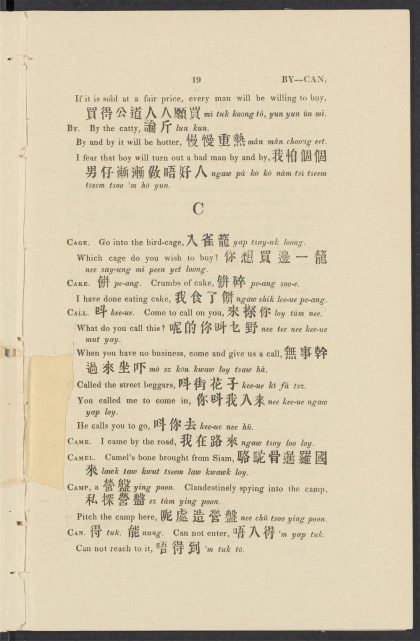 19 BY—CAN.
If it is sold at a fair price, every man will be willing to buy,
買得公道人人願買 mi tuk koong tò, yun yun ün mi.
By. By the catty, 論斤 lun kun.
By and by it will be hotter, 慢慢重熱 mán mán choong eet.
I fear that boy will turn out a bad man by and by, 我怕個個
男仔漸漸做唔好人 ngaw pá kò kò nàm tsi tseem
tseem tsoo 'm hò yun.
C
Cage. Go into the bird-cage, 入雀籠 yap tsay-uk loong.
Which cage do you wish to buy? 你想買邊一籠
nee say-ung mi peen yet loong.
Cake. 餅 pe-ang. Crumbs of cake, 餅碎 pe-ang soo-e.
I have done eating cake, 我食了餅 ngaw shik lee-ue pe-ang.
Call. 叫 kee-ue. Come to call on you, 來探你 loy tám nee.
What do you call this? 呢的你叫乜野 nee tee nee kee-ue
mut yay.
When you have no business, come and give us a call, 無事幹
過來坐吓 mò sz kòn kwaw loy tsaw há.
Called the street beggars, 叫街花子 kee-ue ki fá tsz.
You called me to come in, 你叫我入來 nee kee-ue ngaw
yap loy.
He calls you to go, 叫你去 kee-ue nee hü.
Came. I came by the road, 我在路來 ngaw tsoy loo loy.
Camel. Camel's bone brought from Siam, 駱駝骨暹羅國
來 lawk taw kwut tseem law kwawk loy.
Camp, a 營盤 ying poon. Clandestinely spying into the camp,
私探營盤 sz tàm ying poon.
Pitch the camp here, 呢處造營盤 nee chü tsoo ying poon.
Can. 得 tuk. 能 nung. Can not enter, 唔入得 'm yap tuk.
Can not reach to it, 唔得到 'm tuk to.